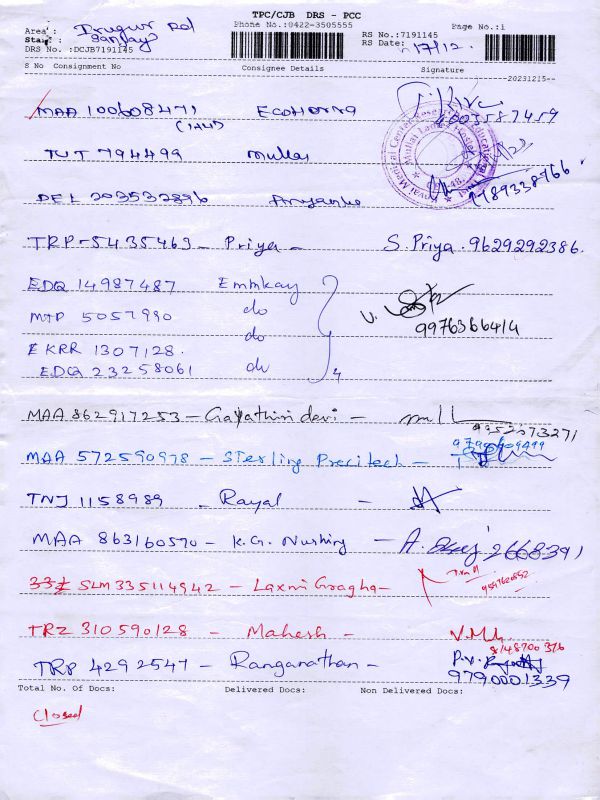 TPC/CJB DRS - PCC
Area : Irugur Rd
Phone No.:0422-3505555
Page No.:1
Staff : Sanjay
RS No.:7191145
DRS No. :DCJB7191145
RS Date: 17/12
S No Consignment No Consignee Details Signature
20231215
MAA 100608471
TUT 794499
DEL 203532896 Priyanka
TRP-5435463 - Priya - S. Priya. 9629292386.
EDQ 14987487 Emmkay
MTP 5057990 do
do
EKRR 1307128.
EDQ 23258061 do
4
V.
9976366414
MAA 862917253 - Gayathiri devi -
MAA 572590978 - Sterling Precitech -
TNJ 1158989 - Rayal -
MAA 863160570 - K.G. Nurshing - A. 2668391
SLM335114942 - Laxmi Gragha -
TRZ 310590128 - Mahesh -
TRP 4292547 - Ranganathan - P.V.
9790001339
Total No. Of Docs: Delivered Docs: Non Delivered Docs:
Closed